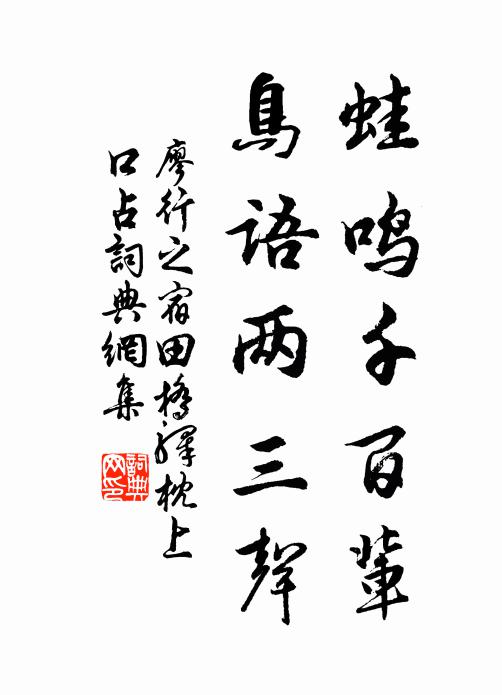 蛙鸣千百辈
鳥語两三聲
廖行之宿田橋驛枕上
口占詞典網集
詞典网印